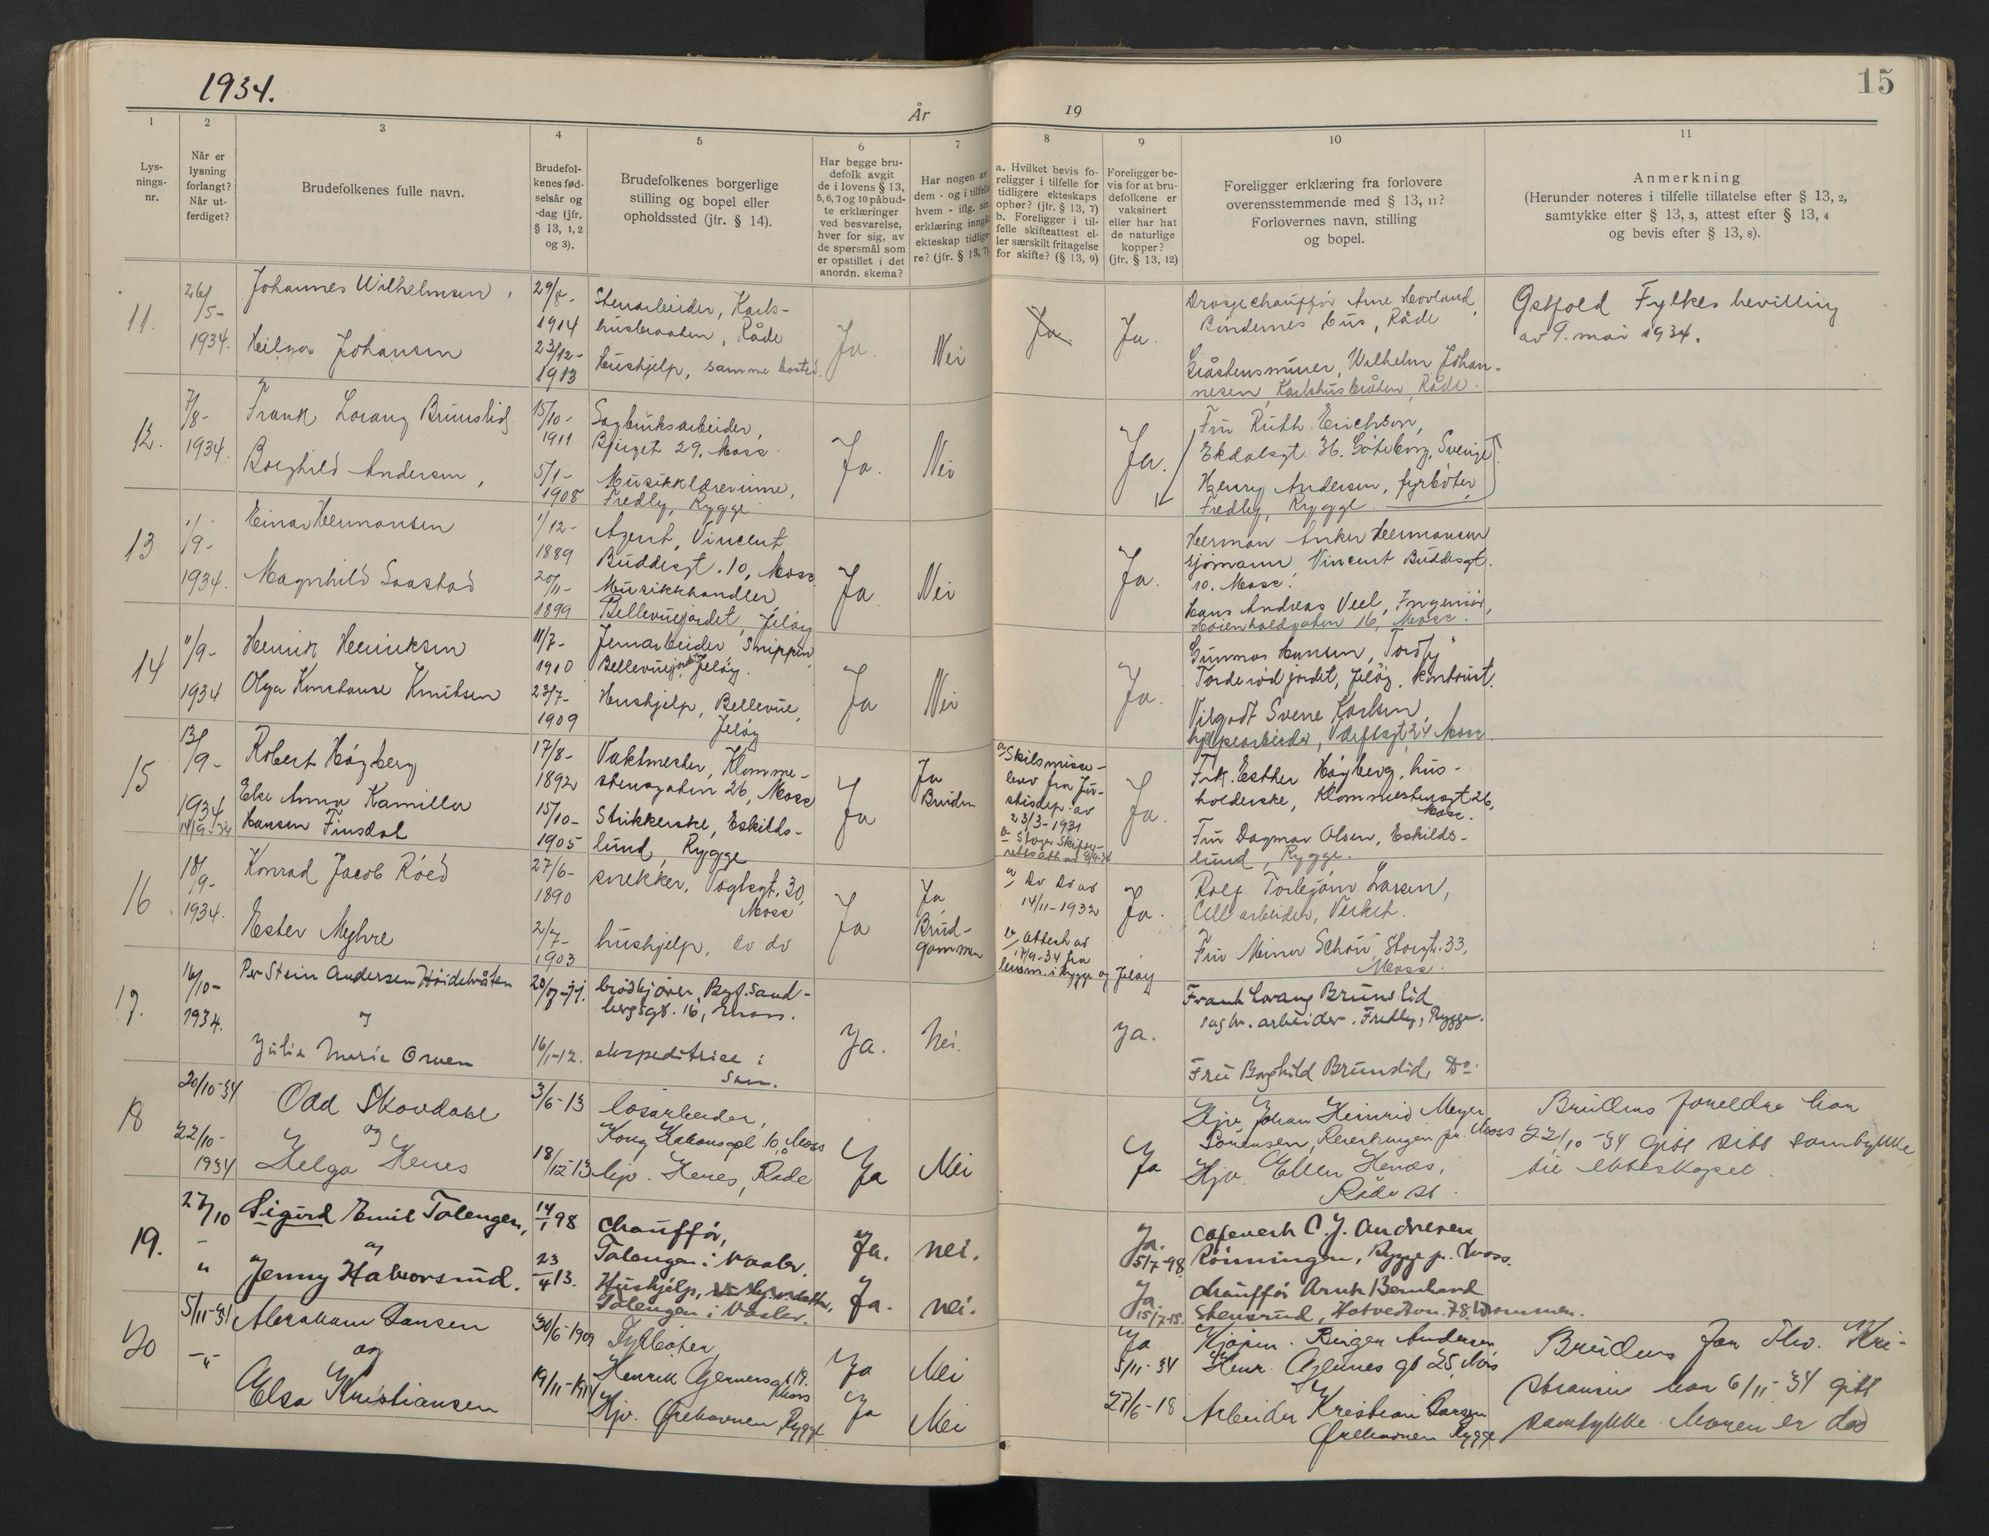 1934.
År
19
15
1
2
3
4
5
6
7
8
9
10
11
Lys-
nings-
nr.
Når er
lysning
forlangt?
Når ut-
ferdiget?
Brudefolkenes fulle navn.
Brudefol-
kenes fød-
selsår og
-dag (jfr.
§ 13, 1, 2
og 3).
Brudefolkenes borgerlige
stilling og bopel eller
opholdssted (jfr. § 14).
Har begge bru-
defolk avgit
de i lovens § 13,
5, 6, 7 og 10 påbud-
te erklæringer
ved besvarelse,
hver for sig, av
de spørsmål som
er opstillet i det
anordn. skema?
Har nogen av
dem - og i tilfelle
hvem - iflg. sin
erklæring inngått
ekteskap tidlige-
re? (jfr. § 13, 7).
a. Hvilket bevis fo-
religger i tilfelle for
tidligere ekteskaps
ophør? (jfr. § 13, 7)
b. Foreligger i til-
felle skifteattest el-
ler særskilt fritagelse
for skifte? (§ 13, 9)
Foreligger be-
vis for at bru-
defolkene er
vaksinert
eller har hat
de naturlige
kopper?
(jfr. § 13, 12)
Foreligger erklæring fra forlovere
overensstemmende med § 13, 11?
Forlovernes navn, stilling
og bopel.
Anmerkning
(Herunder noteres i tilfelle tillatelse efter § 13, 2,
samtykke efter § 13, 3, attest efter § 13, 4
og bevis efter § 13, 8).
11.
26/5-
1934.
Johannes Wilhelmsen,
Helga Johansen
29/8-
1914
23/12-
1913
Stenarbeider, Karls-
husbraaten, Råde
Hushjelp, samme bosted.
Ja.
Nei
Ja.
Ja.
Drosjechauffør Arne Hovland,
Bindernes hus, Råde
Gråstensmurer, Wilhelm Johan-
nesen, Karlshusbråten, Råde.
Østfold Fylkes bevilling
av 9. mai 1934.
12.
7/8-
1934.
Frank Lorang Brunslid
Borghild Andersen,
15/10-
1911
5/1-
1908
Sagbruksarbeider,
29, Moss.
Musikklærerinne,
Fredly, Rygge
Ja.
Nei
Ja.
Fru Ruth Erichson,
Ekdalsgt. 36, Göteborg, Sverige
Henry Andersen, fyrbøter,
Fredly, Rygge.
13
1/9-
1934.
Einar Hermansen
Magnhild Saastad
1/12-
1889
20/11-
1899
Agent, Vincent
Buddesgt. 10, Moss
Musikkhandler
Bellevuejordet, Jeløy
Ja.
Nei
Ja.
Herman Anker Hermansen
sjømann, Vincent Buddesgt.
10. Moss.
Hans Andreas Veel, Ingeniør,
Høienholdgaten 16, Moss.
14
11/9-
1934
Henrik Henriksen
Olga Konstanse Knutsen
11/7-
1910
23/7-
1909
Jernarbeider,
Bellevuejord. Jeløy.
Hushjelp, Bellevue,
Jeløy
Ja
Nei
Ja.
Gunnar Hansen, "Tordly"
Torderødjordet, Jeløy, kontrist.
Vilgodt Sverre Karlsen
hjelpearbeider, Værftsgt, 24 Moss
15
13/9-
1934
14/9-34
Robert Høgberg
Eke Anna Kamilla
Hansen Finsdal
17/8-
1892
15/10-
1905
Vaktmester, Klomme-
stensgaten 26, Moss
Strikkerske, Eskilds-
lund, Rygge
Ja
Ja
Bruden
a/ Skilsmisse-
brev fra Ju-
stisdep. av
23/3-1931
Ja.
Frk. Esther Høgberg, hus-
holderske, Klommestensgt 26,
Moss.
Fru Dagmar Olsen, Eskilds-
lund, Rygge.
16
18/9-
1934.
Konrad Jacob Røed
Ester Myhre
27/6-
1890
2/7-
1903
snekker, Vogtsgt. 30,
Moss
hushjelp, do do
Ja
Ja
Brud-
gommen
a/ Do do av
14/11-1932
b/ Attest av
14/9-34 fra
lensm. i Rygge og Jeløy
Ja.
Rolf Torbjørn Larsen,
Cell. arbeider, Verket.
Fru Minna Schøn, Storgt. 33,
Moss.
17.
16/10-
1934.
Per Stein Andersen Høidebråten
og
Julie Marie Orven
20/7-71.
16/1-12.
brødkjører, Byf. Sand-
bergsgt. 16, Moss.
ekspeditrise i
Ja.
Nei.
Ja.
Frank Lorang Brunslid
sagbr. arbeider. Fredly, Rygge.
Fru Borghild Brunslid, Do.
18
20/10-34
22/10-
1934
Odd Skovdahl
og
Helga Henes
3/6-13
18/12-13
løsarbeider,
Kong Hakonsgt. 10, Moss
hjv. Henes, Råde
Ja
Nei
Ja
Hjv. Johan Heinrid Meyer
Sørensen, Reierkingen pr. Moss
Hjv. Ellen Henæs,
Råde st.
Brudens foreldre har
22/10-34 gitt sitt samtykke
til ekteskapet.
19.
27/10
-
"
Sigurd Emil Tolengen,
og
Jenny Halvorsrud.
14/1 98
23/4 13.
Chauffør,
Tolengen i Vaaler.
Hushjelp,
Tolengen i Vaaler.
Ja.
Ja.
nei.
nei.
Ja.
5/7-98
Ja
15/7-15.
Cafevert C. J. Andresen
Rønningen, Rygge p. Moss.
chauffør Arnt Bernhard
Stensrud, Hotvedtvn. 78. Drammen.
20
5/11-34
-"-
Abraham Jansen
og
Elsa Kristiansen
30/6-1909
19/11-1914
Fyrbøter
Henrik Gerners gt 19.
Moss
Hjv. Ørehavnen Rygge
Ja
Ja
Nei
Nei
Ja
5/11-34
27/6-18
Kjøpm. Birger Andersen,
Henr. Gerners gt 25, Moss
Arbeider Kristian Larsen
Ørehavnen Rygge
Brudens far Thv. Kri-
stiansen har 6/11-34 gitt
samtykke. Moren er død